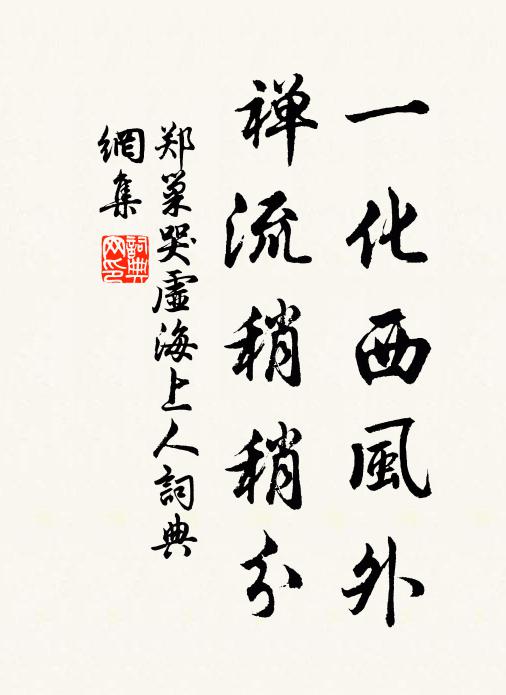 一化西風外
禅流稍稍分
郑巢哭虛海上人詞典
網集
詞典
网印